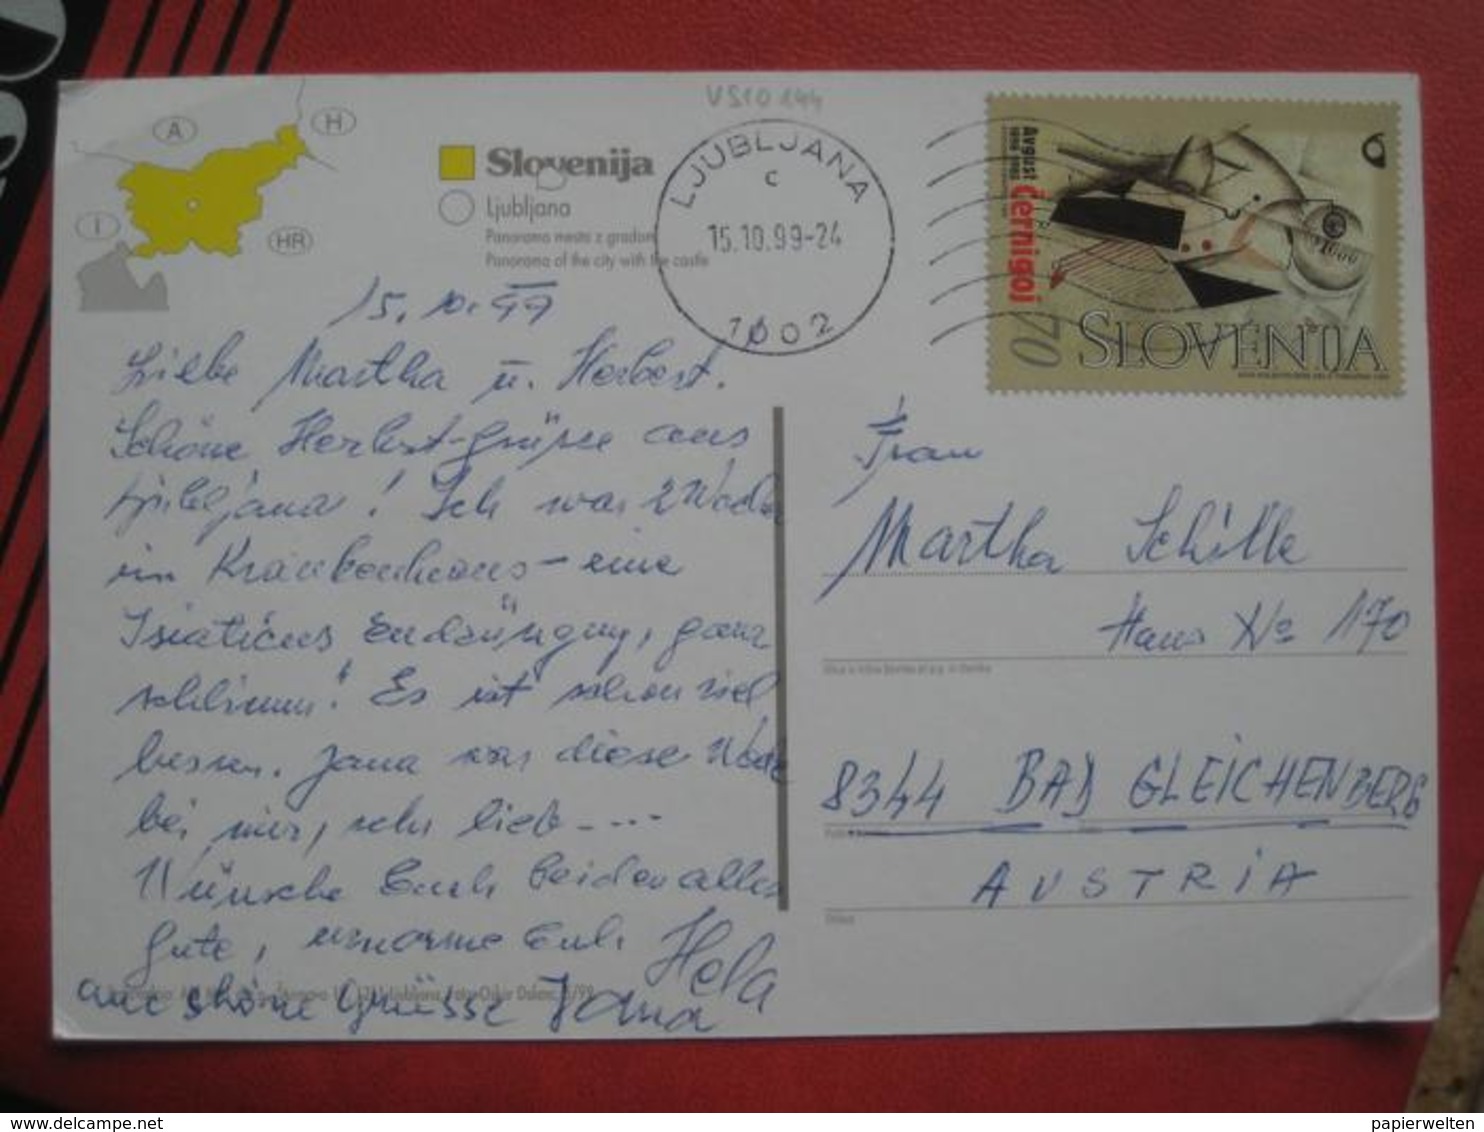 VS10 144
A
H
I
HR
Slovenija
Ljubljana
Panorama mesta z gradom
Panorama of the city with the castle
LJUBLJANA
c
15.10.99-24
1002
Avgust černigoj
1898 1985
1000
70
SLOVENIJA
15. 10. 99
Liebe Martha u. Herbert.
Schöne Herbst-grüsse aus
Ljubljana! Ich war 2 Woche
im Krankenhaus - eine
Isiaticus Endzüngung, ganz
schlimm! Es ist schon viel
besser. Jana war diese Woche
bei mir, sehr lieb - ...
Wünsche Euch beiden alles
gute, umarme Euch Hela
auc shöne Grüsse Jana
Frau
Martha Schille
Haus No 170
8344 BAD GLEICHENBERG
AUSTRIA
papierwelten